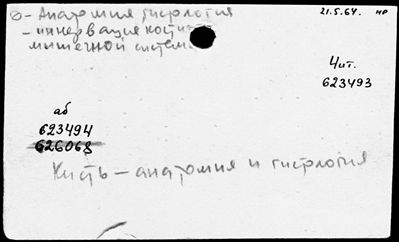 ⌀ - Анатомия, гистология
21.5.64. нр
- иннервация костно
мышечной систем
Чит.
623493
аб
623494
626068
Кисть — анатомия и гистология